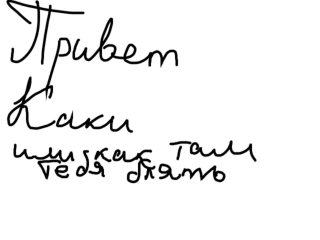 Привет
Каки
или как там
тебя блять